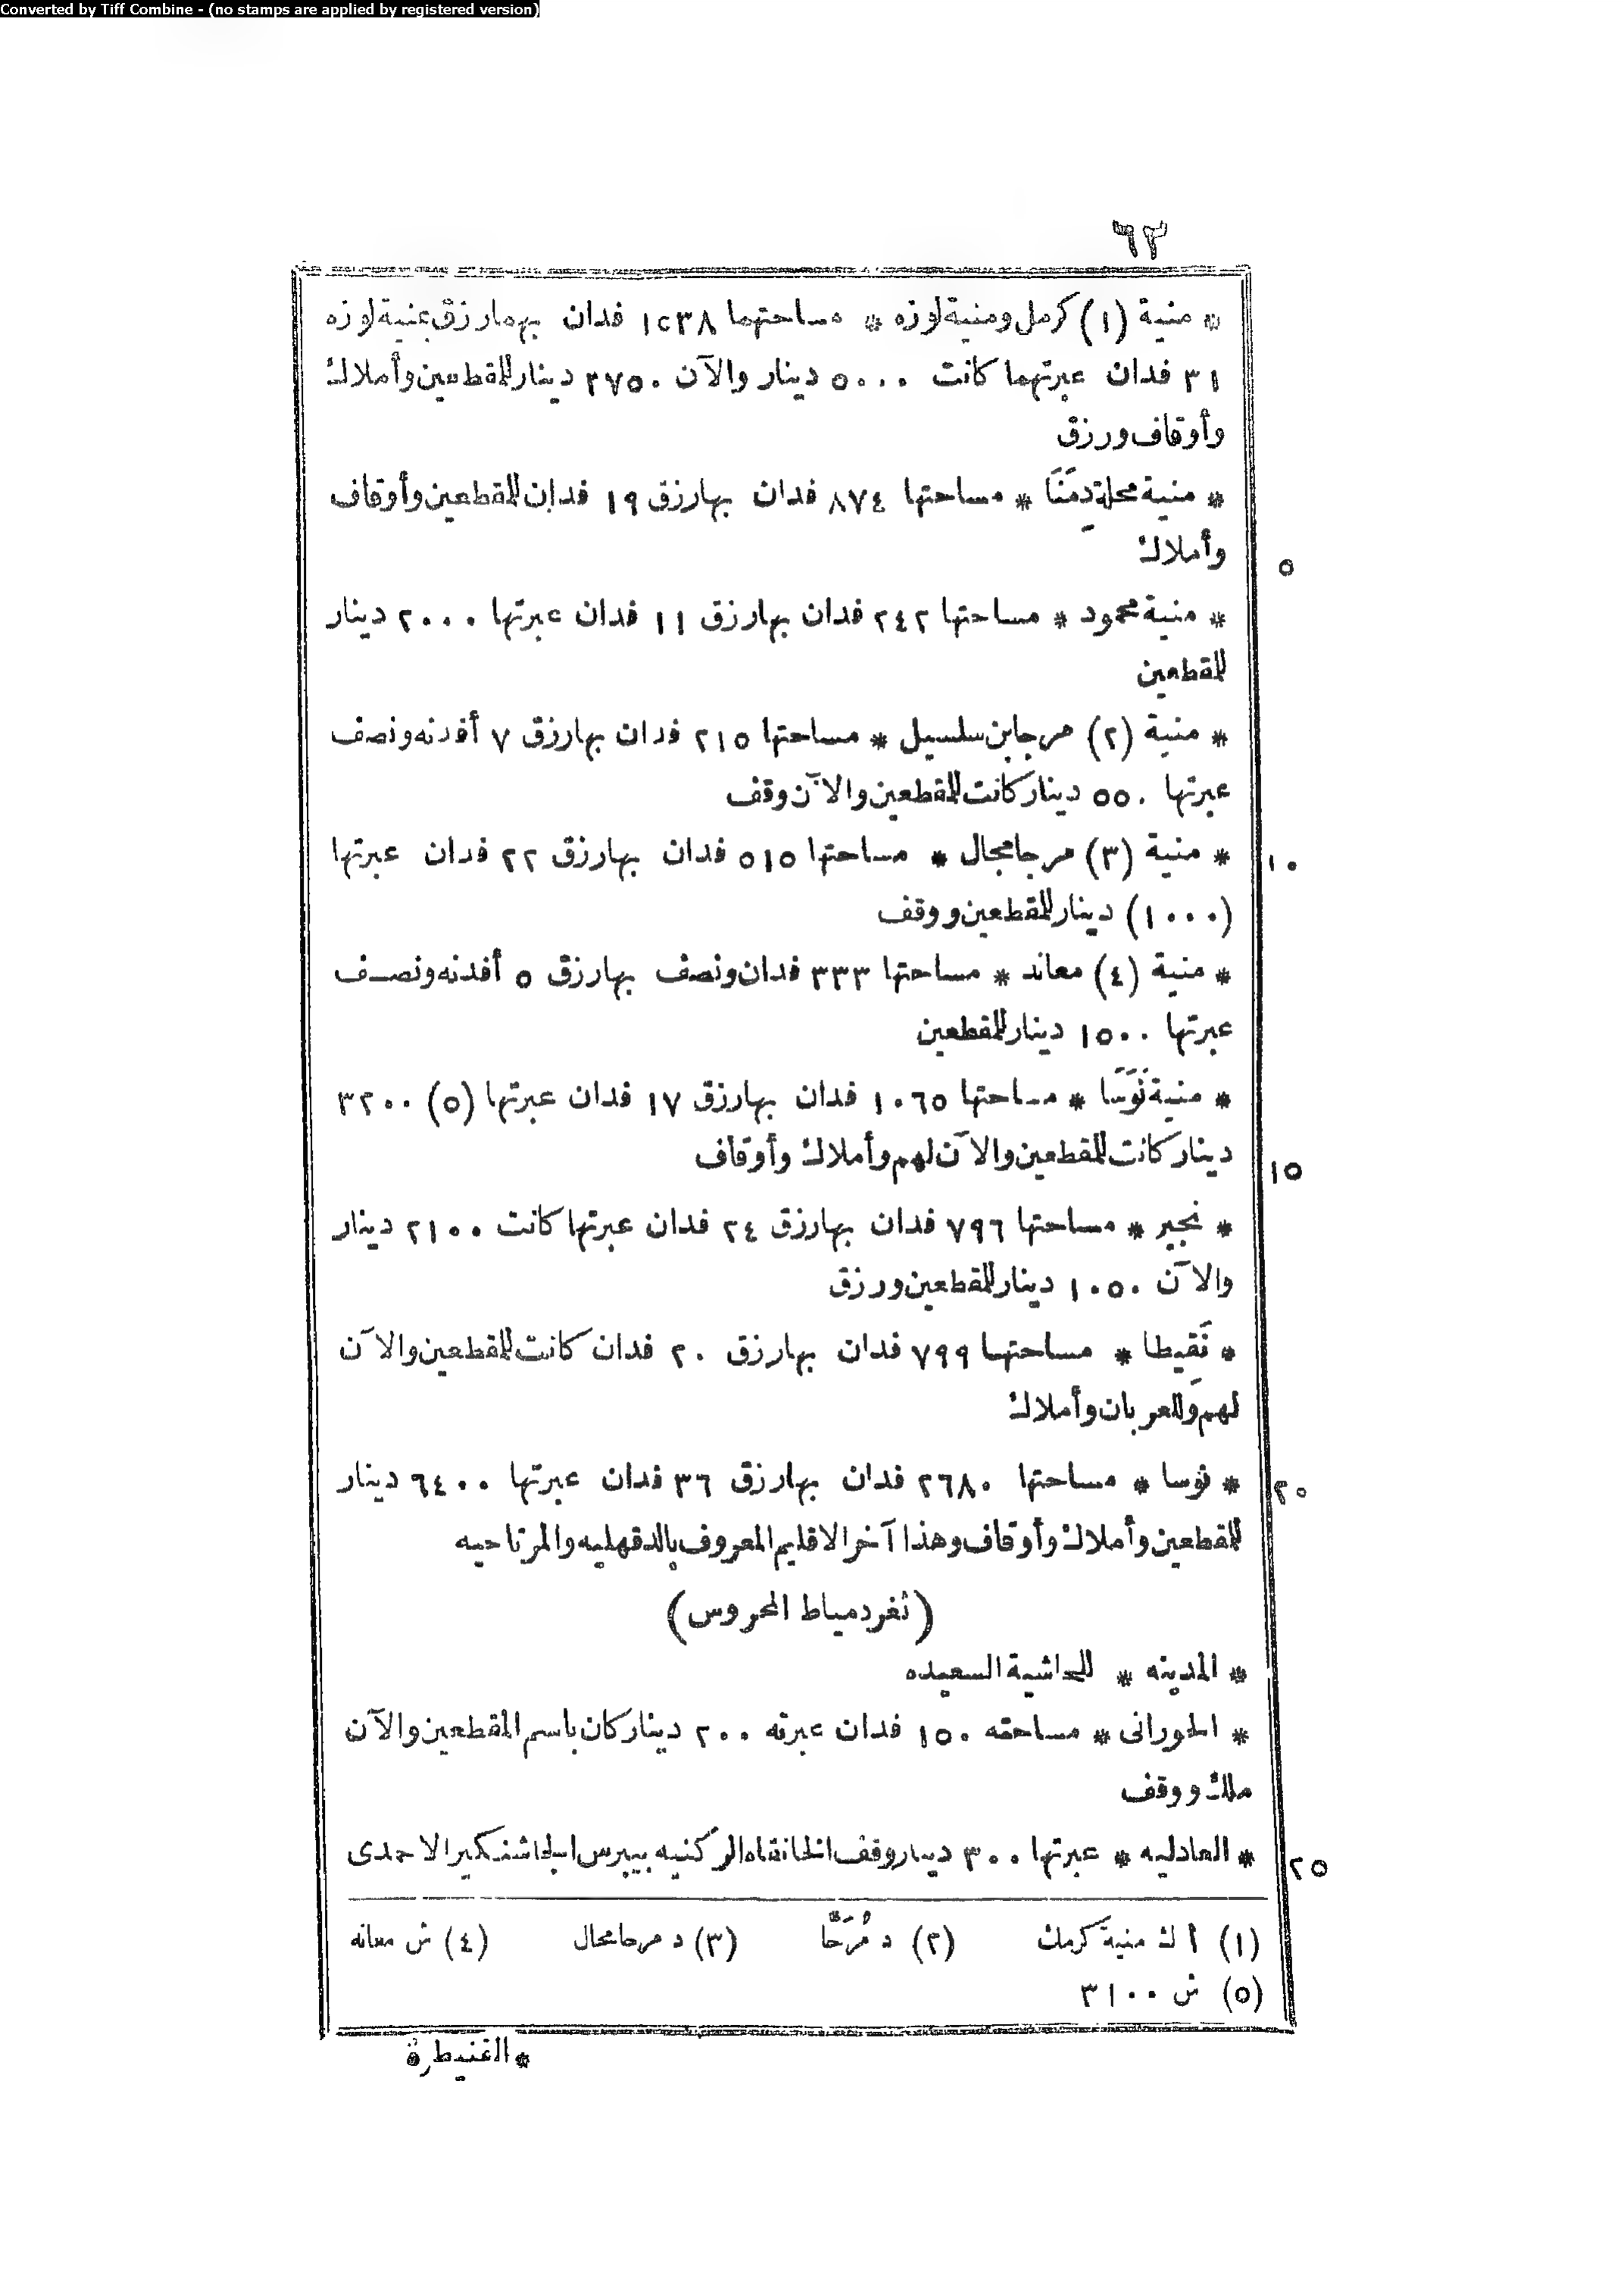 Converted by Tiff Combine - (no stamps are applied by registered version)
٦٣
* منية (١) كرمل ومنية لوزه * مساحتهما ١٢٣٨ فدان بهما رزق بمنية لوزه
٣١ فدان عبرتهما كانت ٥٠٠٠ دينار والآن ٣٧٥٠ دينار للمقطعين وأملاك
وأوقاف ورزق
* منية محلة دِمَنَا * مساحتها ٨٧٤ فدان بها رزق ١٩ فدان للمقطعين وأوقاف
وأملاك
٥
* منية محمود * مساحتها ٢٤٢ فدان بها رزق ١١ فدان عبرتها ٢٠٠٠ دينار
للمقطعين
* منية (٢) مرجا بن سلسيل * مساحتها ٢١٥ فدان بها رزق ٧ أفدنه ونصف
عبرتها ٥٥٠ دينار كانت للمقطعين والآن وقف
* منية (٣) مرجا مجال * مساحتها ٥١٥ فدان بها رزق ٢٢ فدان عبرتها
١٠
(١٠٠٠) دينار للمقطعين ووقف
* منية (٤) معاند * مساحتها ٣٣٣ فدان ونصف بها رزق ٥ أفدنه ونصف
عبرتها ١٥٠٠ دينار للمقطعين
* منية نَوَسَا * مساحتها ١٠٦٥ فدان بها رزق ١٧ فدان عبرتها (٥) ٣٢٠٠
دينار كانت للمقطعين والآن لهم وأملاك وأوقاف
١٥
* نجير * مساحتها ٧٩٦ فدان بها رزق ٢٤ فدان عبرتها كانت ٢١٠٠ دينار
والآن ١٠٥٠ دينار للمقطعين ورزق
* نَقِيطا * مساحتها ٧٩٩ فدان بها رزق ٢٠ فدان كانت للمقطعين والآن
لهم وللعربان وأملاك
* نوسا * مساحتها ٢٦٨٠ فدان بها رزق ٣٦ فدان عبرتها ٦٤٠٠ دينار
٢٠
للمقطعين وأملاك وأوقاف وهذا آخر الاقليم المعروف بالدقهليه والمرتاحيه
(ثغر دمياط المحروس)
* المدينه * للحاشية السعيده
* الحورانى * مساحته ١٥٠ فدان عبرته ٢٠٠ دينار كان باسم المقطعين والآن
ملك ووقف
* العادليه * عبرتها ٣٠٠ دينار وقف الخانقاه الركنيه بيبرس الجاشنكير الاحمدى
٢٥
(١) أ ك منية كرمك (٢) د مُرَجَّا (٣) د مرحا محال (٤) ش معانه
(٥) ش ٣١٠٠
* القنيطرة